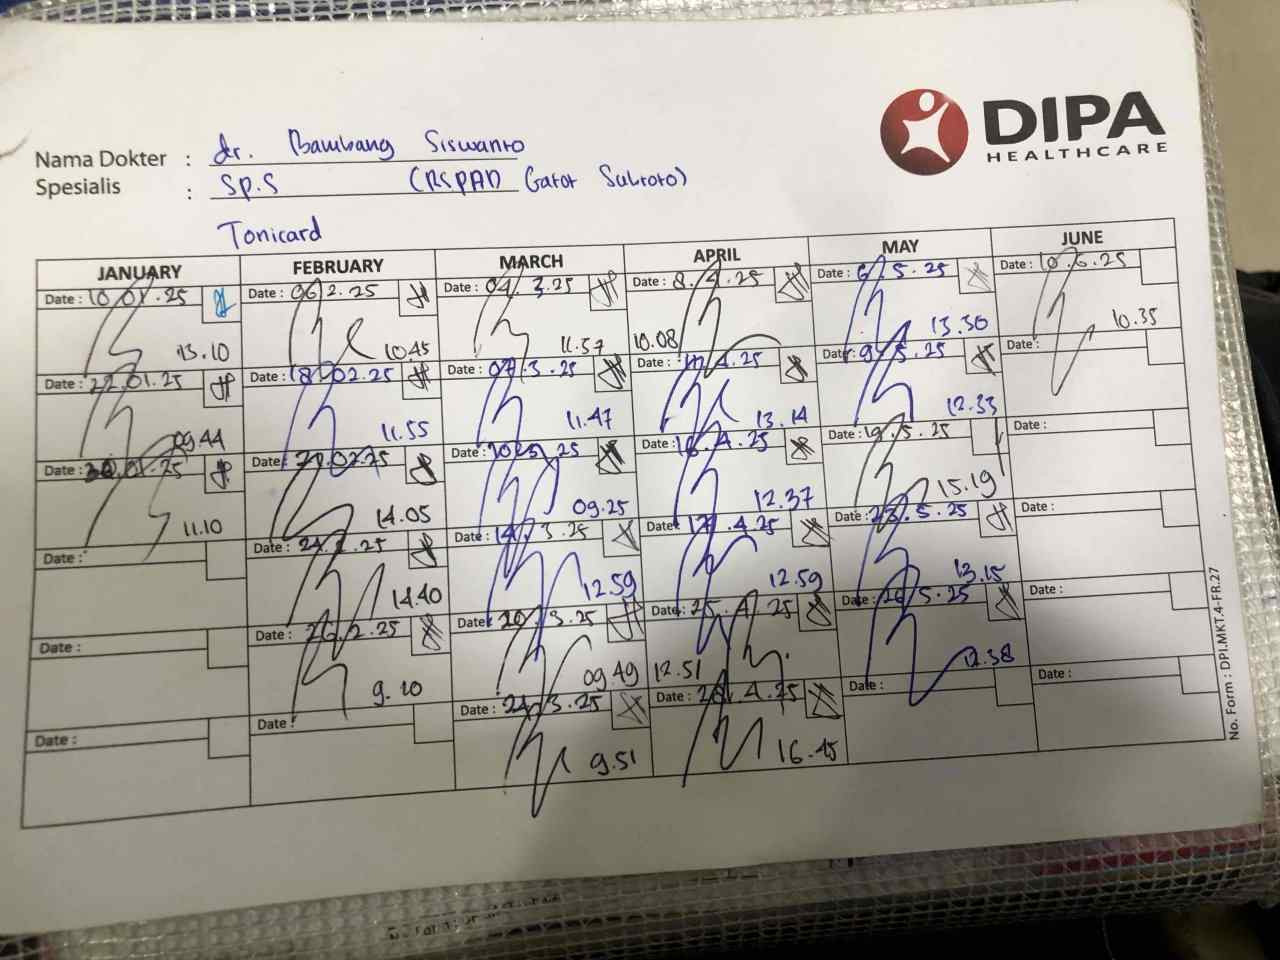 DIPA
HEALTHCARE
Nama Dokter : dr. Bambang Siswanto
Spesialis : Sp.S (RSPAD Gatot Subroto)
Tonicard
JANUARY FEBRUARY MARCH APRIL MAY JUNE
Date : 10.01.25 Date : 06.2.25 Date : 04.3.25 Date : 8.4.25 Date : 6.5.25 10.6.25
13.10 10.45 11.57 10.08 13.30 10.35
Date : 22.01.25 Date : 18.02.25 Date : 07.3.25 Date : 4.25 Date : 9.5.25 Date :
09.44 11.55 11.47 13.14 12.33
Date : 01.25 Date : 02.25 Date : 25 Date : 16.4.25 Date : 19.5.25 Date :
11.10 14.05 09.25 12.37 15.19
Date : Date : 24.2.25 Date : 14.3.25 Date : 17.4.25 Date : 23.5.25 Date :
14.40 12.59 12.59 13.15
Date : Date : 26.2.25 Date : 20.3.25 Date : 25.4.25 Date : 26.5.25 Date :
9.10 09.49 12.51 12.38
Date : Date : Date : 24.3.25 Date : 28.4.25 Date : Date :
9.51 16.45
No. Form : DPI.MKT.4-FR.27